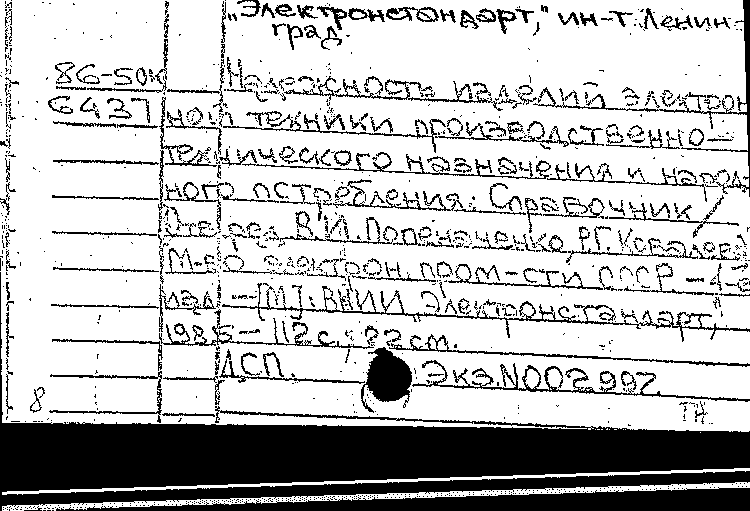 „Электронстандарт," ин-т. Ленин-
град.
86-50к Надежность изделий электрон
6437 ной техники производственно-
технического назначения и народ-
ного потребления: Справочник /
Отв. ред. В.И. Попеначенко, Р.Г. Ковалева;
М-во электрон. пром-сти СССР. - 4-е
изд. - [М]: ВНИИ „Электронстандарт,"
1985 - 112 с.; 22 см.
ДСП. Экз.N002992
8 ТН.